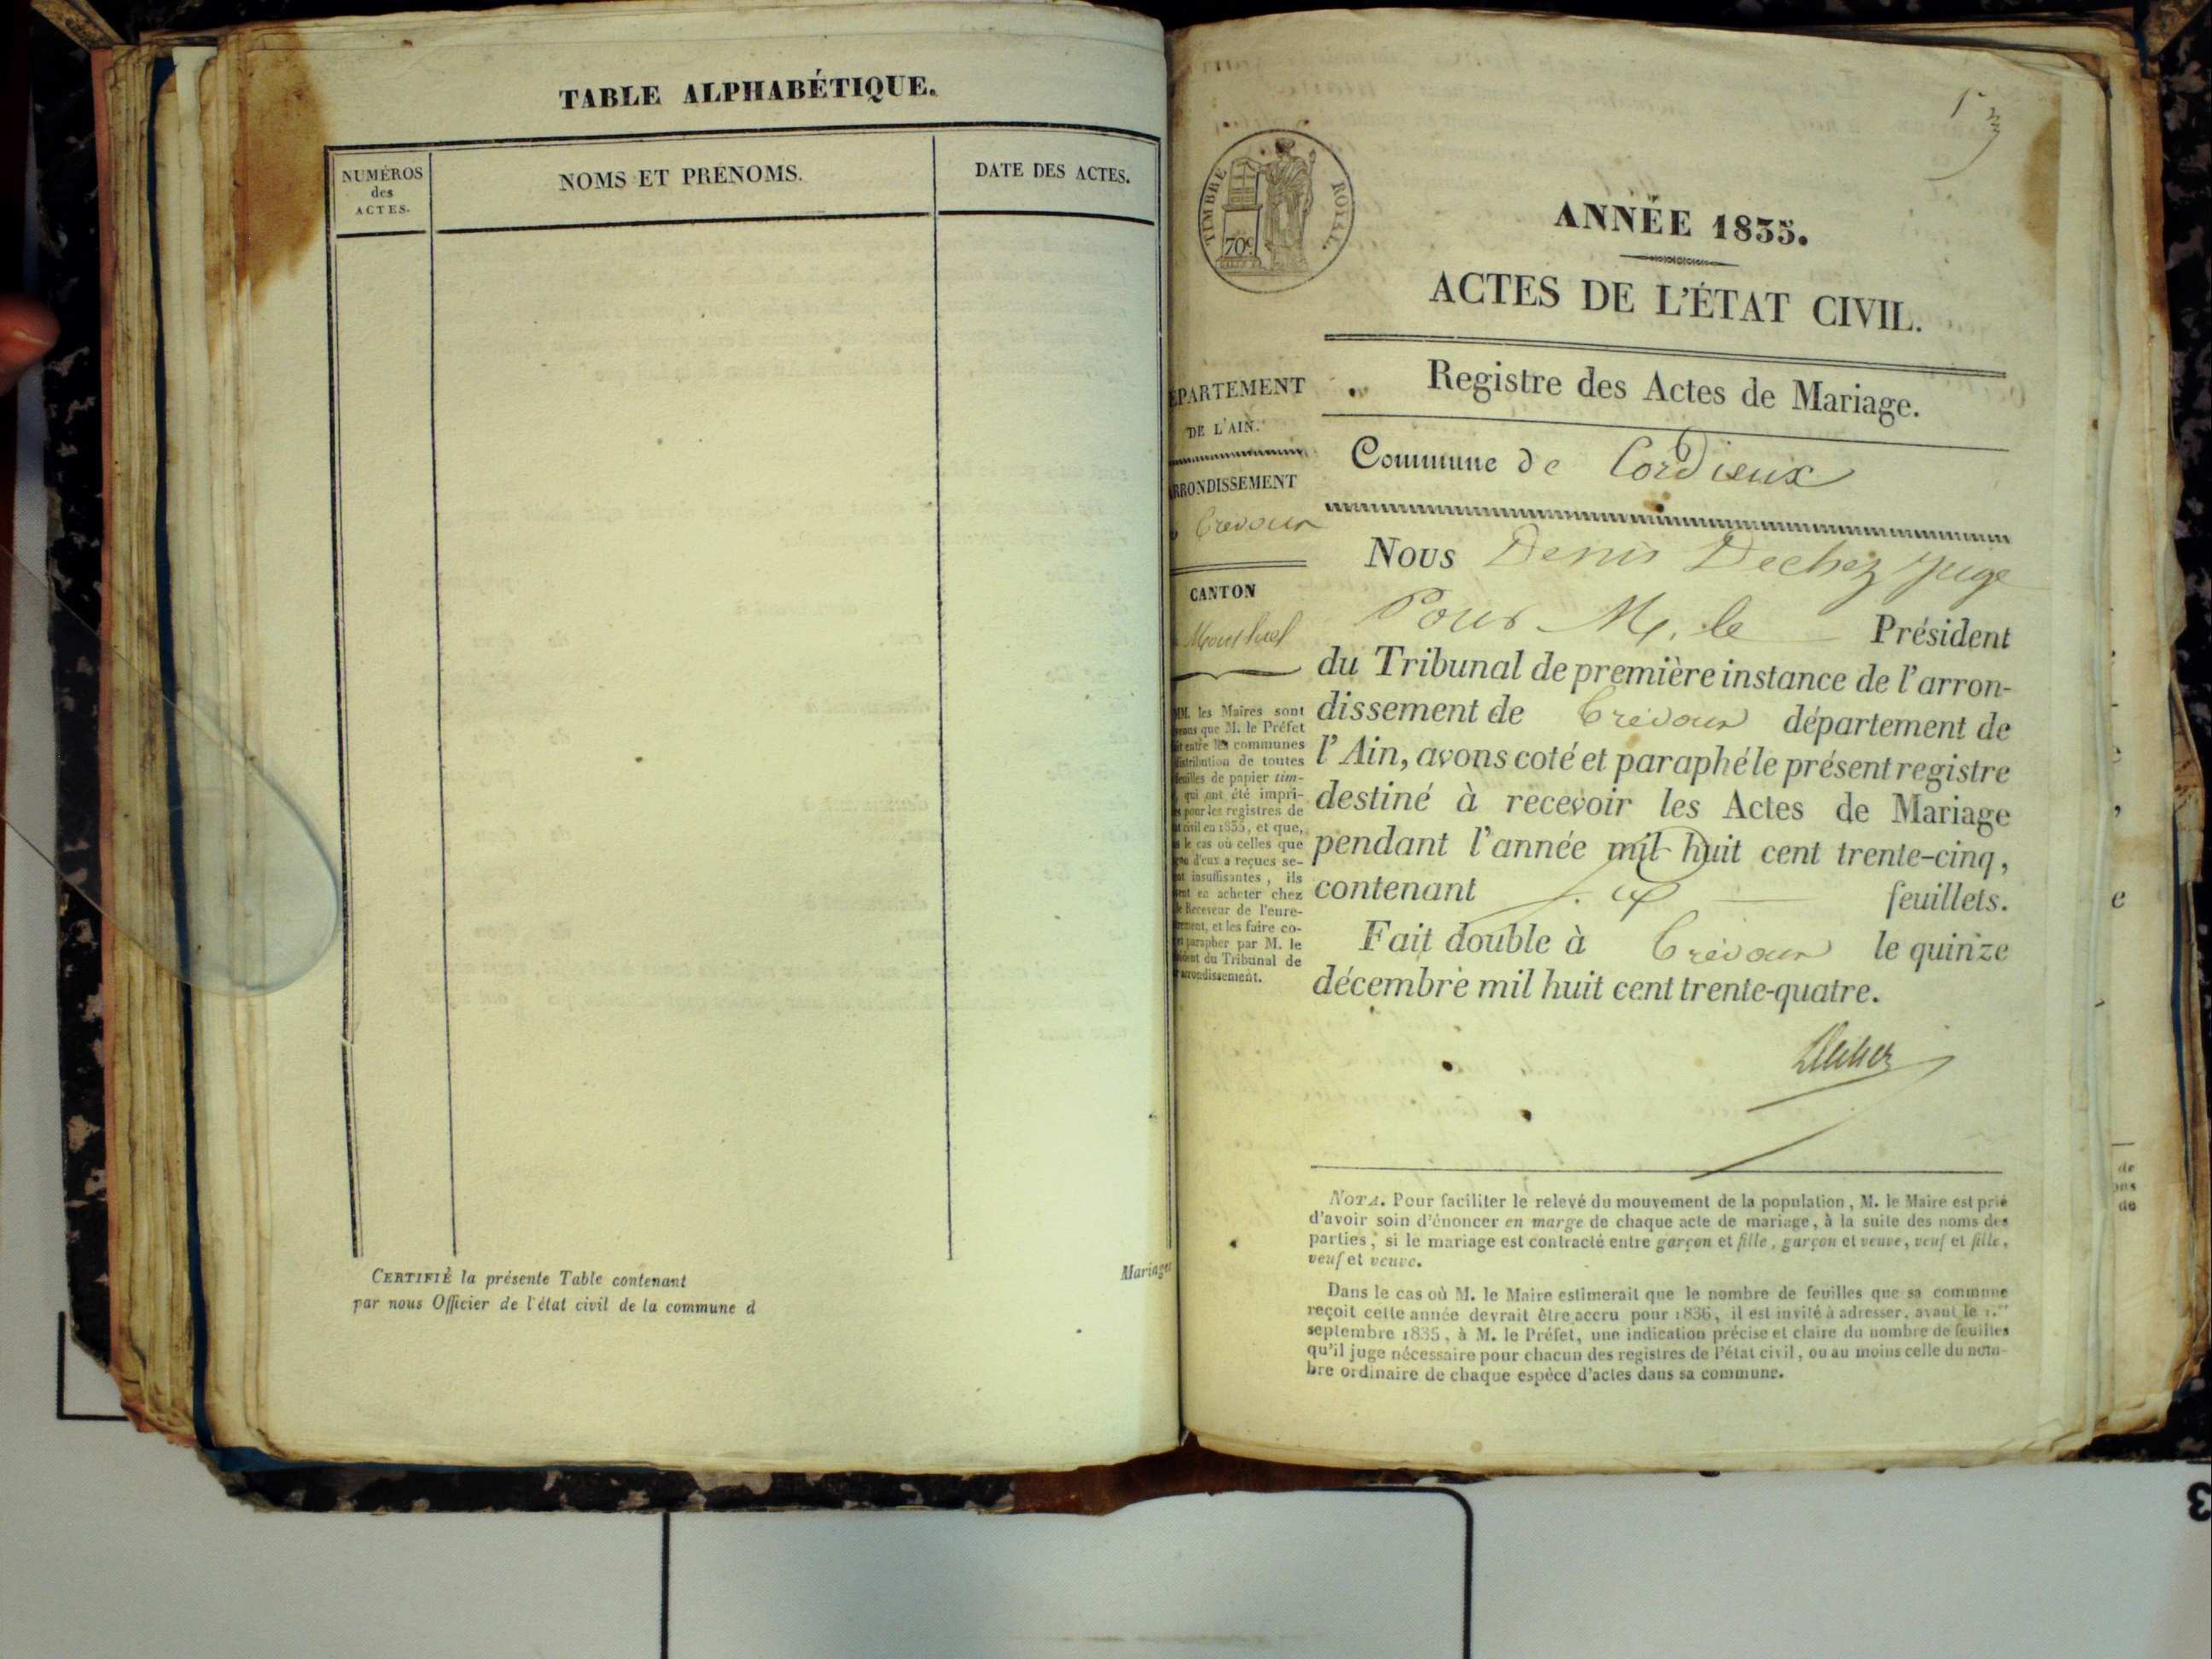 TABLE ALPHABÉTIQUE.
NUMÉROS
des
ACTES.
NOMS ET PRÉNOMS.
DATE DES ACTES.
CERTIFIÉ la présente Table contenant
par nous Officier de l'état civil de la commune d
Mariages
TIMBRE ROYAL
70c
ANNÉE 1835.
ACTES DE L'ÉTAT CIVIL.
Registre des Actes de Mariage.
ÉPARTEMENT
DE L'AIN.
RRONDISSEMENT
Trévoux
CANTON
Montluel
MM. les Maires sont
que M. le Préfet
entre les communes
distribution de toutes
feuilles de papier tim-
qui ont été impri-
pour les registres de
civil en 1835, et que,
le cas où celles que
d'eux a reçues se-
insuffisantes, ils
en acheter chez
le Receveur de l'enre-
et les faire co-
parapher par M. le
du Tribunal de
arrondissement.
Commune de Cordieux
Nous Denis Dechez juge
Pour M. le Président
du Tribunal de première instance de l'arron-
dissement de Trévoux département de
l'Ain, avons coté et paraphé le présent registre
destiné à recevoir les Actes de Mariage
pendant l'année mil huit cent trente-cinq,
contenant feuillets.
Fait double à Trévoux le quinze
décembre mil huit cent trente-quatre.
Dechez
NOTA. Pour faciliter le relevé du mouvement de la population, M. le Maire est prié
d'avoir soin d'énoncer en marge de chaque acte de mariage, à la suite des noms des
parties, si le mariage est contracté entre garçon et fille, garçon et veuve, veuf et fille,
veuf et veuve.
Dans le cas où M. le Maire estimerait que le nombre de feuilles que sa commune
reçoit cette année devrait être accru pour 1836, il est invité à adresser, avant le 1.er
septembre 1835, à M. le Préfet, une indication précise et claire du nombre de feuilles
qu'il juge nécessaire pour chacun des registres de l'état civil, ou au moins celle du nom-
bre ordinaire de chaque espèce d'actes dans sa commune.